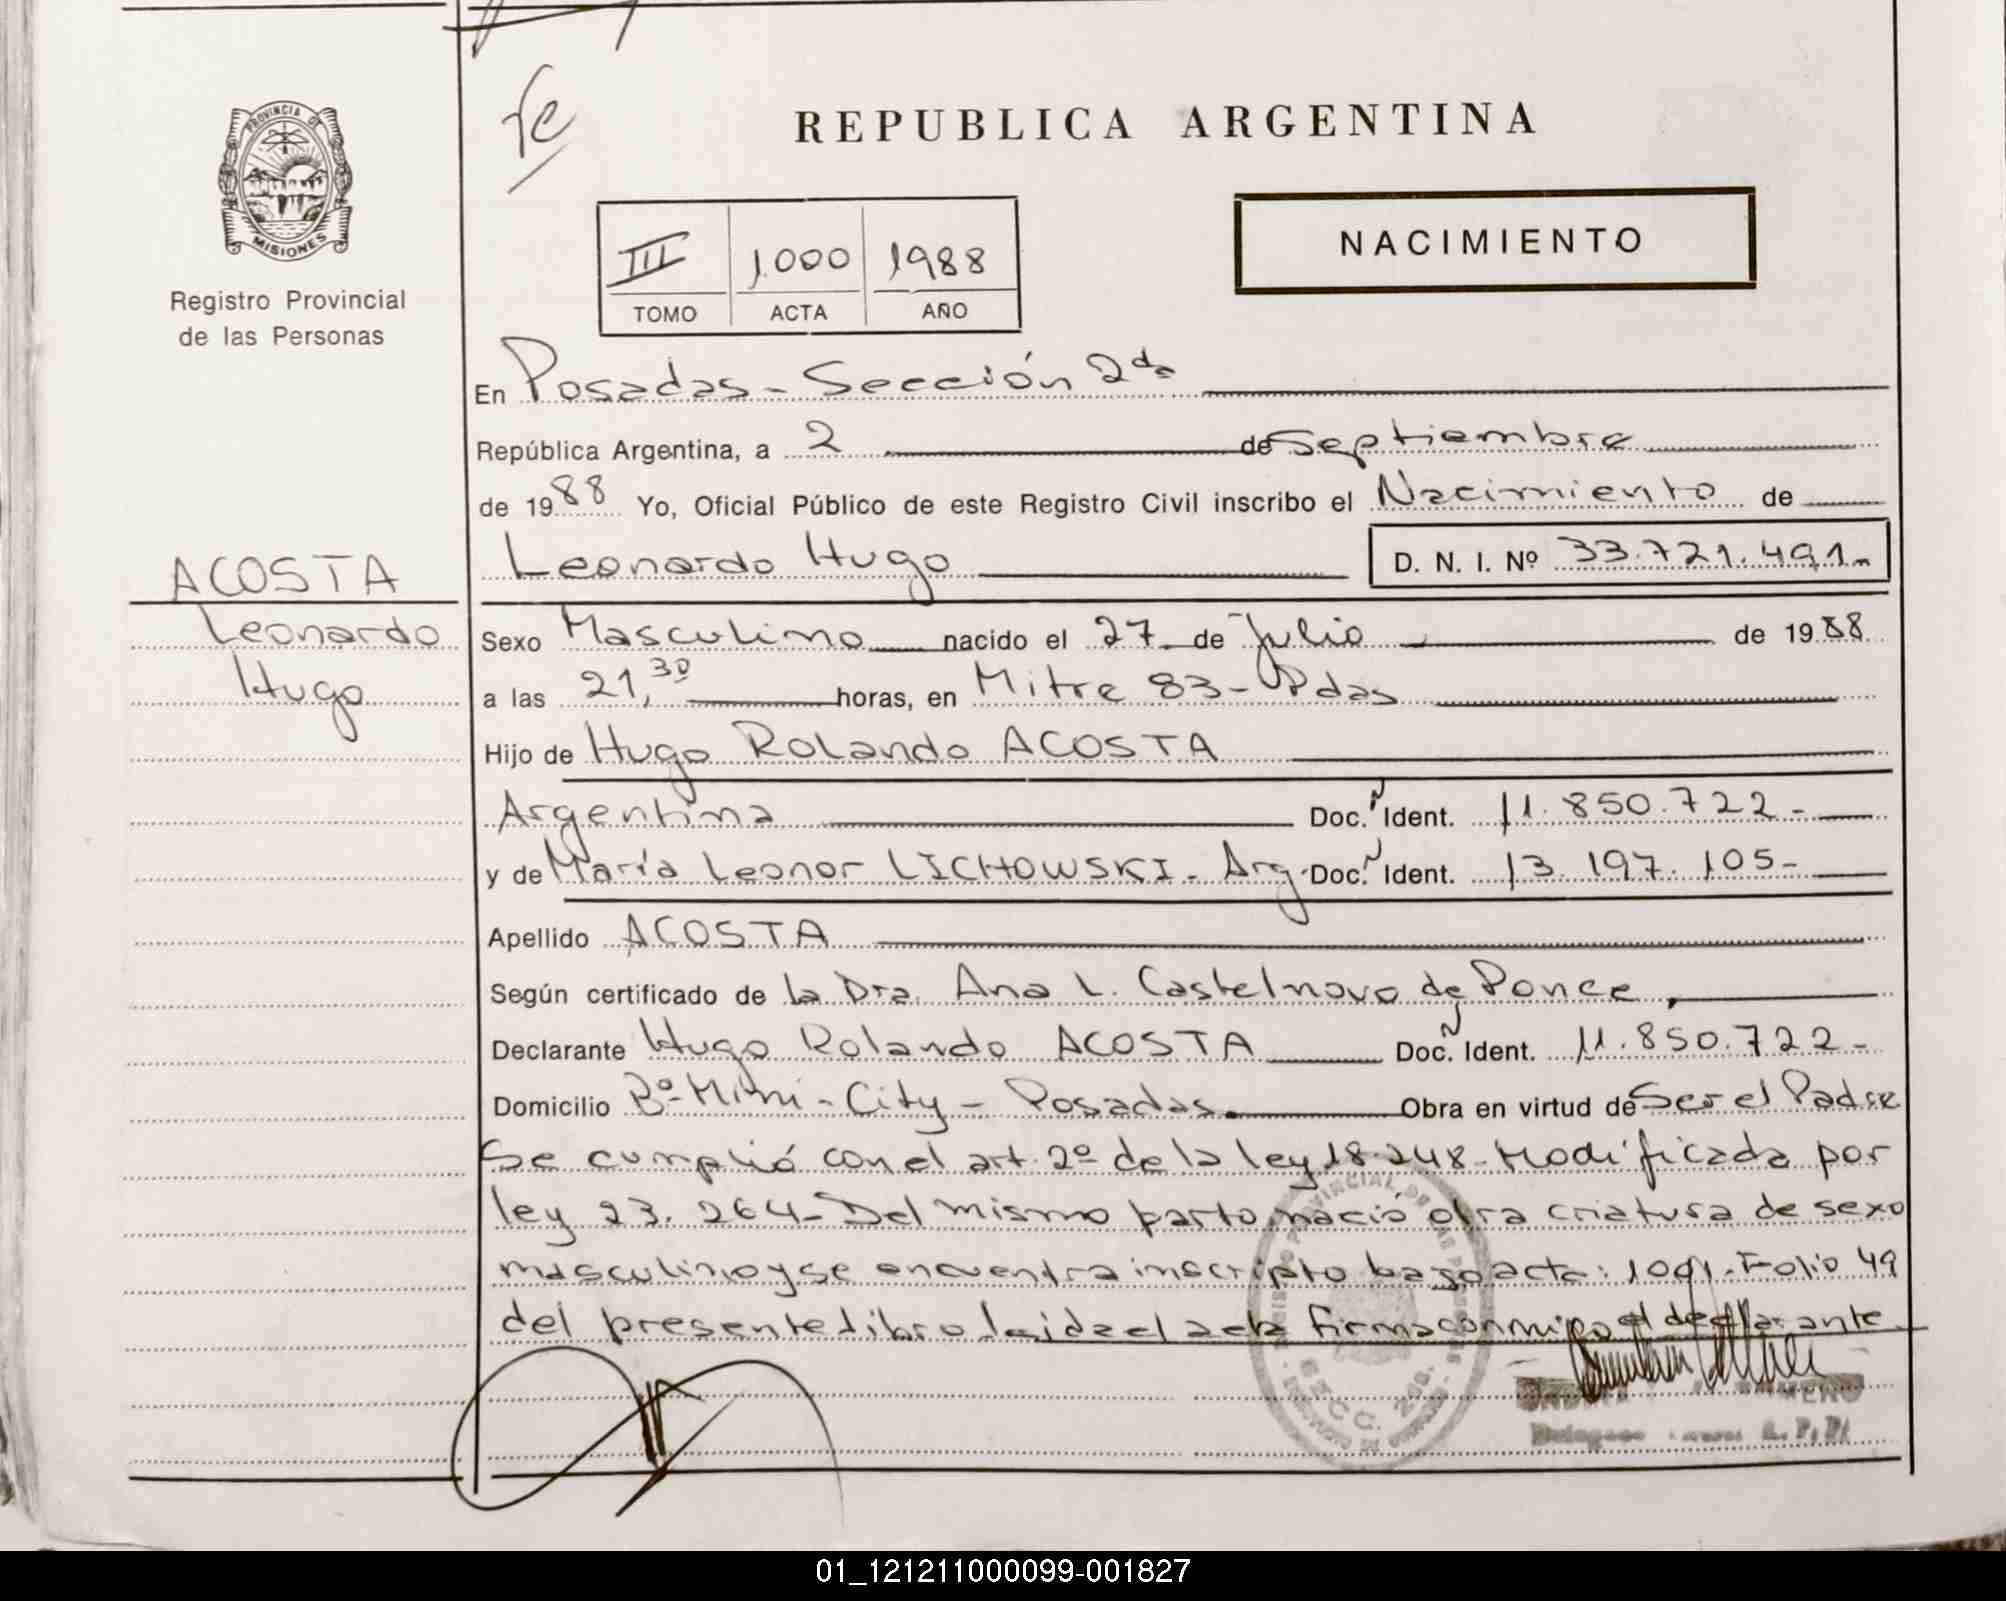 PROVINCIA DE
MISIONES
Registro Provincial
de las Personas
REPUBLICA ARGENTINA
NACIMIENTO
III 1000 1988
TOMO ACTA AÑO
En Posadas - Sección 2da
República Argentina, a 2 de Septiembre
de 1988 Yo, Oficial Público de este Registro Civil inscribo el Nacimiento de
ACOSTA
Leonardo
Hugo
Leonardo Hugo D. N. I. Nº 33.721.491
Sexo Masculino nacido el 27 de Julio de 1988
a las 21,30 horas, en Mitre 83 - Pdas
Hijo de Hugo Rolando ACOSTA
Argentina Doc. Ident. 11.850.722-
y de María Leonor LICHOWSKI - Arg. Doc. Ident. 13.197.105-
Apellido ACOSTA
Según certificado de la Dra. Ana L. Castelnovo de Ponce,
Declarante Hugo Rolando ACOSTA Doc. Ident. 11.850.722-
Domicilio Bº Mini - City - Posadas. Obra en virtud de Ser el Padre
Se cumplió con el art. 2º de la ley 18.248 - Modificada por
ley 23.264 - Del mismo parto nació otra criatura de sexo
masculino y se encuentra inscripto bajo acta: 1001 - Folio 49
del presente libro leida el acta firma conmigo el declarante
SECC. 2da.
01_121211000099-001827